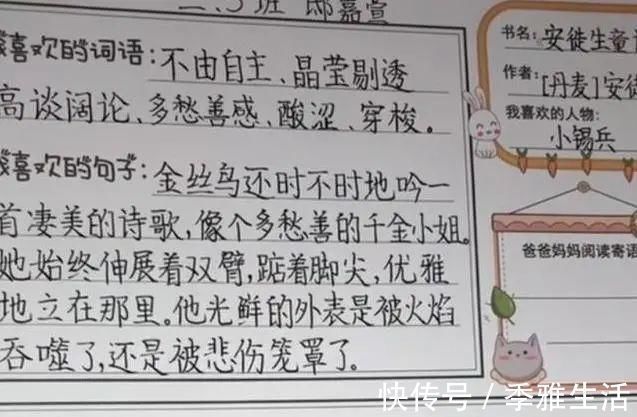 二、3班 邸嘉萱
喜欢的词语：不由自主、晶莹剔透
高谈阔论、多愁善感、酸涩、穿梭。
喜欢的句子：金丝鸟还时不时地吟一
首凄美的诗歌，像个多愁善的千金小姐。
她始终伸展着双臂，踮着脚尖，优雅
地立在那里。他光鲜的外表是被火焰
吞噬了，还是被悲伤笼罩了。
书名：安徒生童
作者：[丹麦]安徒
我喜欢的人物：
小锡兵
爸爸妈妈阅读寄语
快传号／季雅生活